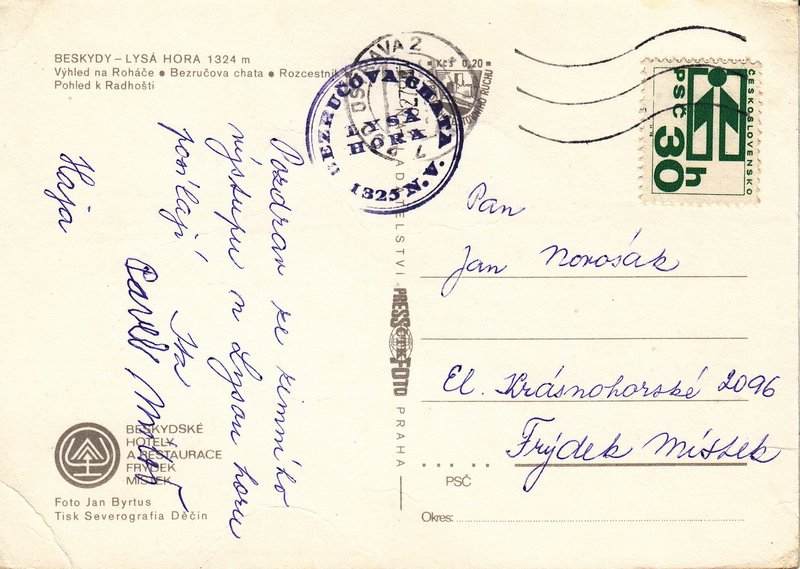 BESKYDY – LYSÁ HORA 1324 m
Výhled na Roháče ● Bezručova chata ● Rozcestník
Pohled k Radhošti
OSTRAVA 2
Kčs 0,20
BEZRUČOVA CHATA
LYSÁ
HORA
1325 N.V.
ČESKOSLOVENSKO
PSČ 30h
Pozdrav ze zimního
výstupu n Lysou horu
posílají Ita
Pavel
Haja
Pan
Jan Novosák
El. Krásnohorské 2096
Frýdek Místek
PRESSFOTO
PRAHA
BESKYDSKÉ
HOTELY
A RESTAURACE
FRÝDEK
MÍSTEK
Foto Jan Byrtus
Tisk Severografia Děčín
PSČ
Okres: